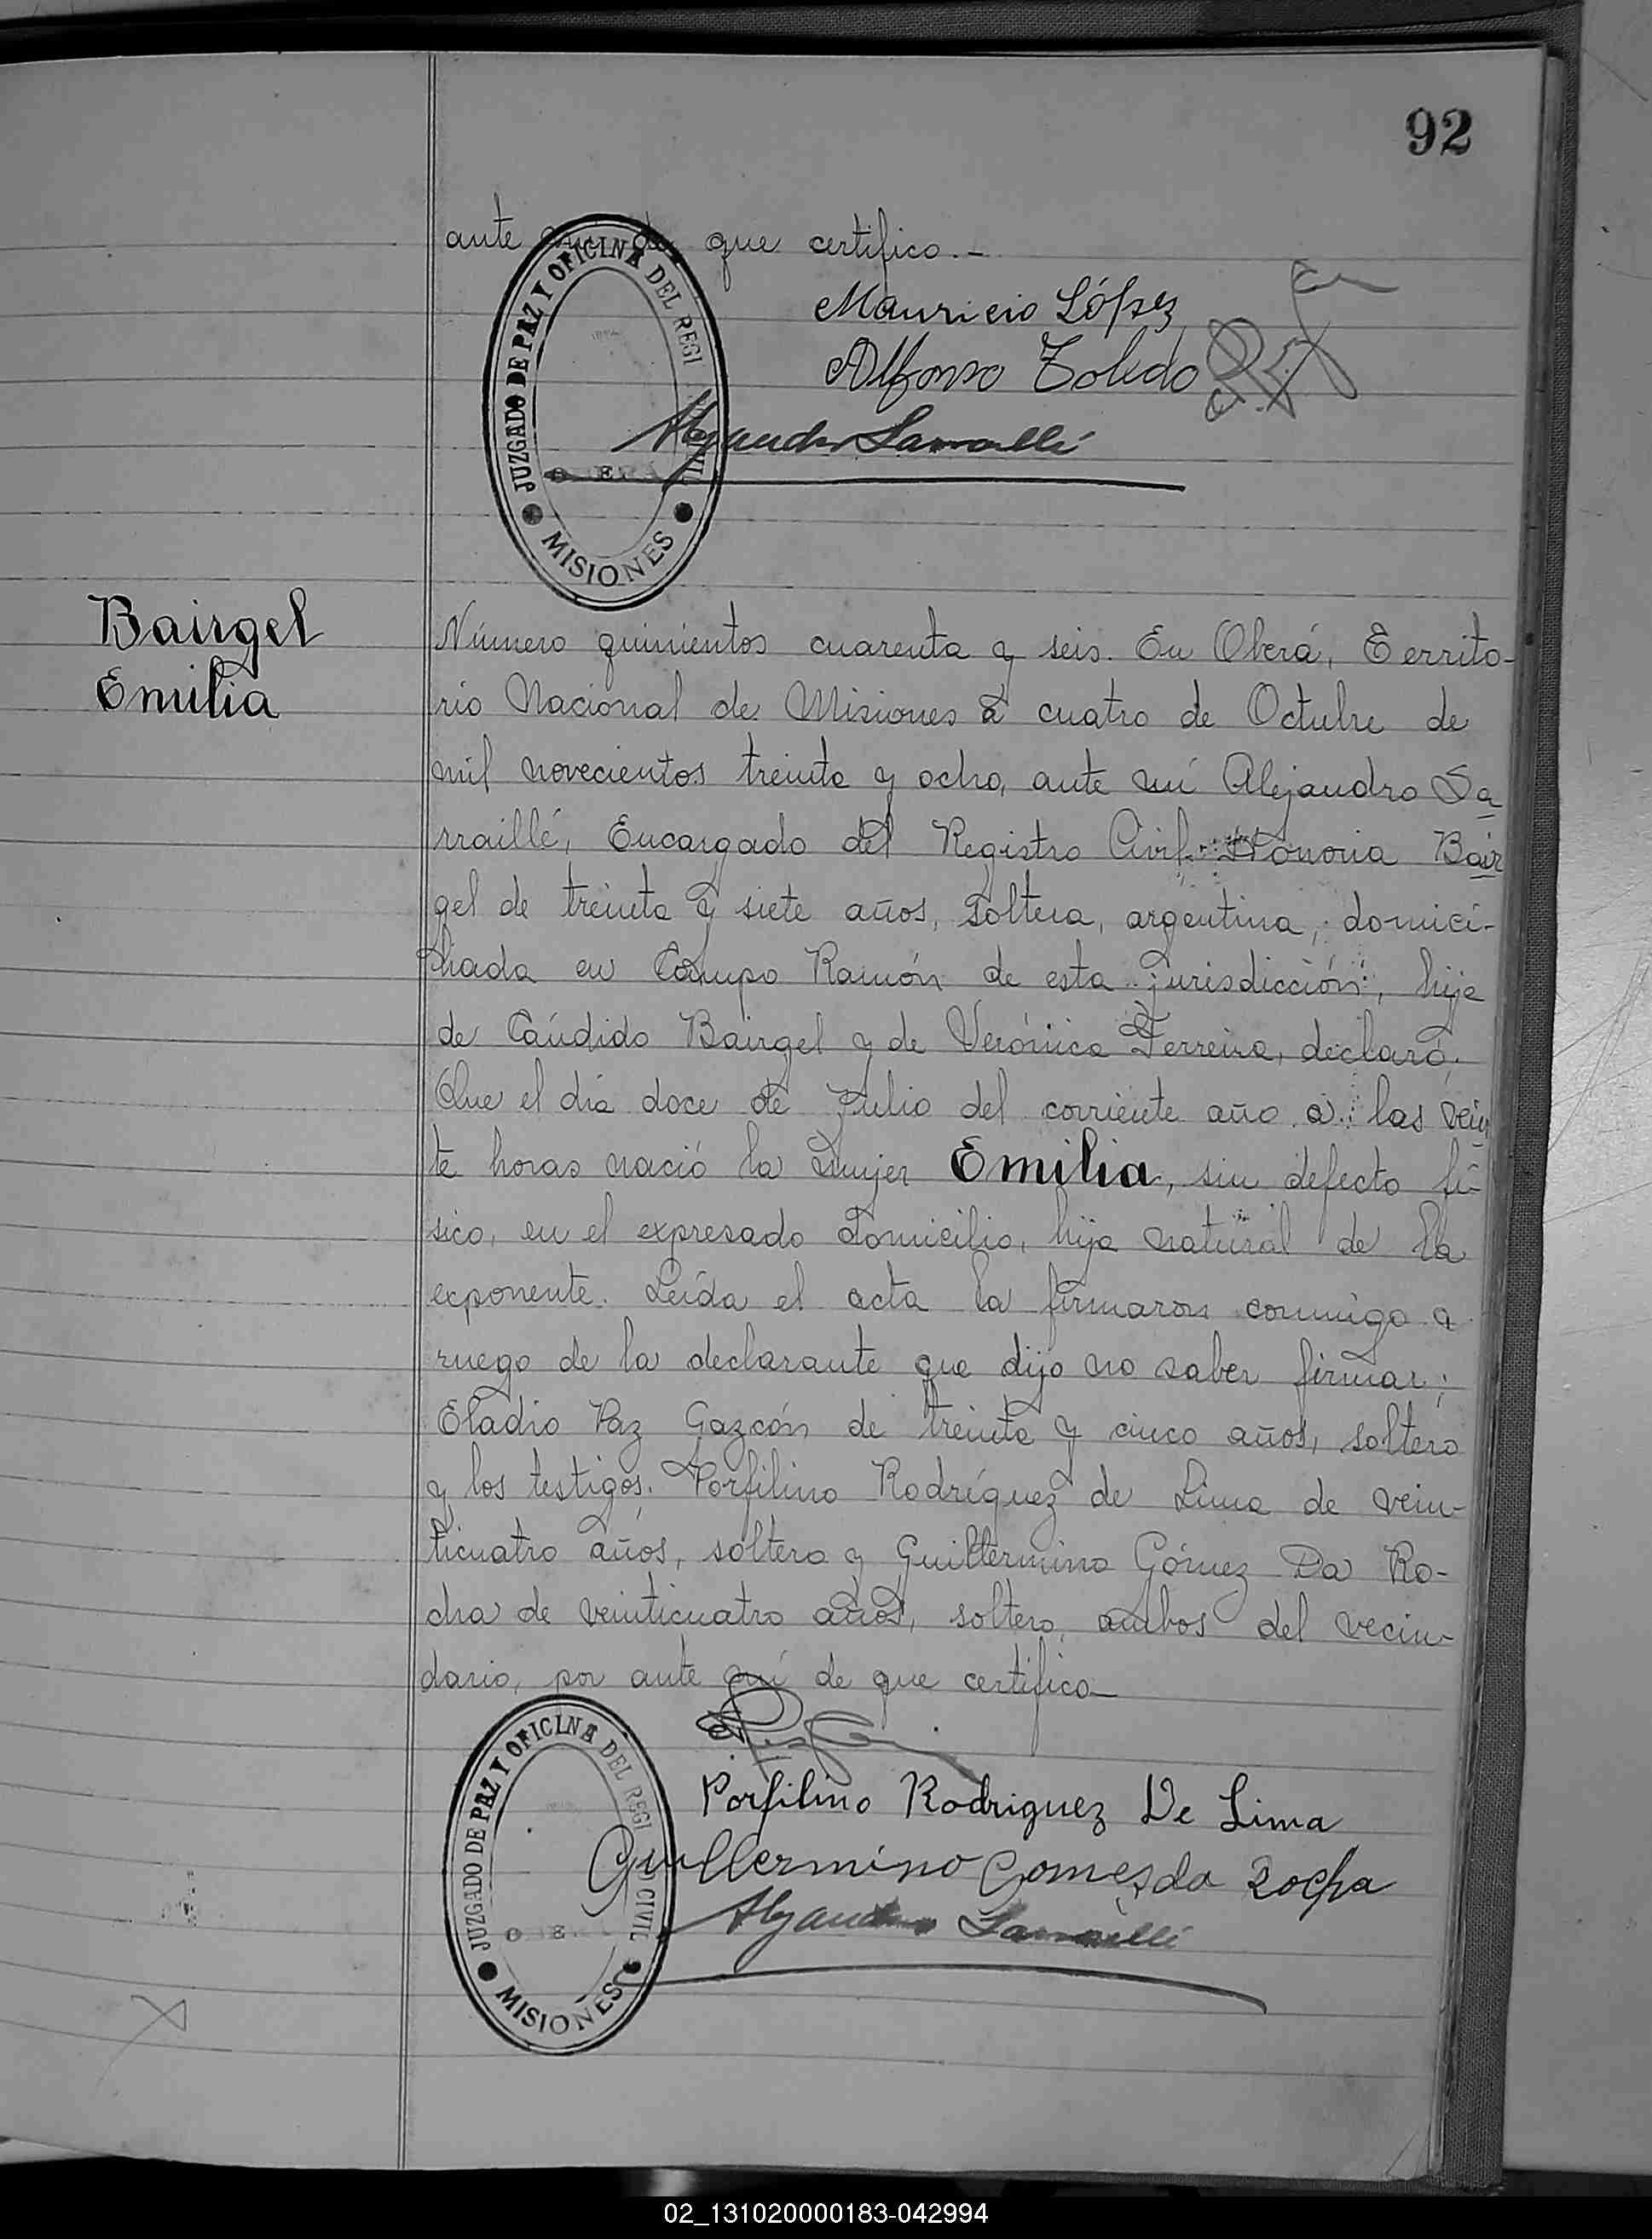 92
ante mí de que certifico.-
Mauricio López
Alfonso Toledo
JUZGADO DE PAZ Y OFICINA DEL REGI CIVIL
MISIONES
Bairgel
Emilia
Número quinientos cuarenta y seis. En Oberá, Territo-
rio Nacional de Misiones a cuatro de Octubre de
mil novecientos treinta y ocho, ante mí Alejandro Sa
rraillé, Encargado del Registro Civil. Honoria Bair
gel de treinta y siete años, soltera, argentina, domici-
liada en Campo Ramón de esta jurisdicción, hija
de Cándido Bairgel y de Verónica Ferreira, declaró;
Que el día doce de Julio del corriente año a las vein
te horas nació la mujer Emilia, sin defecto fí-
sico, en el expresado domicilio, hija natural de la
exponente. Leída el acta la firmaron conmigo a
ruego de la declarante que dijo no saber firmar;
Eladio Paz Gazcón de treinta y cinco años, soltero
y los testigos. Porfilino Rodríguez de Lima de vein-
ticuatro años, soltero y Guillermino Gómez Da Ro-
cha de veinticuatro años, soltero, ambos del vecin-
dario, por ante mí de que certifico-
Porfilino Rodriguez De Lima
Guillermino Gomes da Rocha
JUZGADO DE PAZ Y OFICINA DEL REGI O CIVIL
MISIONES
02_131020000183-042994